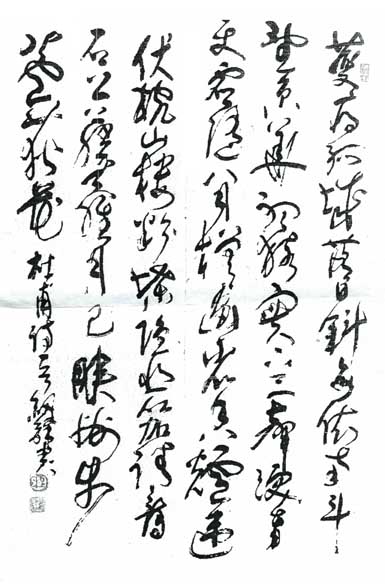 夔府孤城落日斜每依南斗
望京華聽猿實下三聲淚奉
使虛隨八月槎畫省香爐違
伏枕山樓粉堞隱悲笳請看
石上藤蘿月已映洲前
蘆荻花 杜甫詩